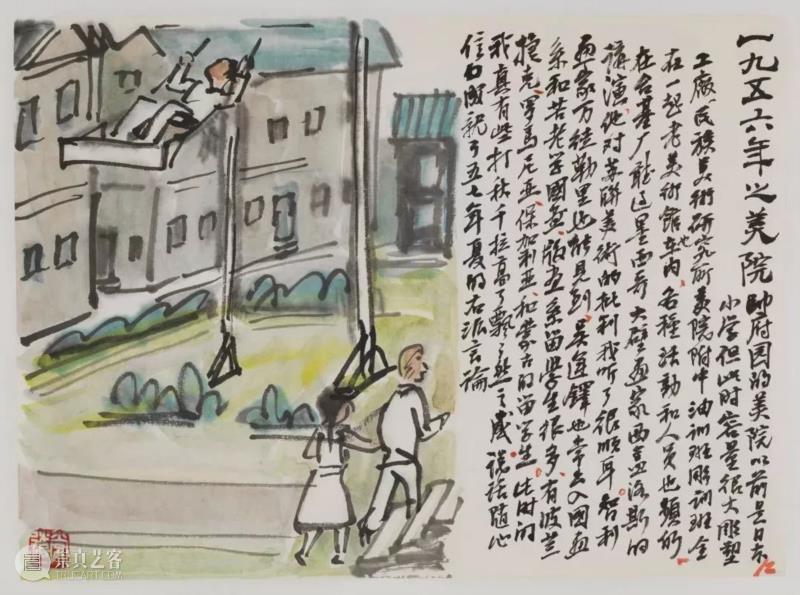 一九五六年之美院 帅府园的美院以前是日本
小学但此时容量很大雕塑
工廠民族美術研究所美院附中油训班雕训班全
在一起老美術馆也在内、各种活動和人员也频仍。
在台基厂听过墨西哥大壁画家西盖洛斯的
讲演、他对苏联美術的批判我听了很顺耳。智利
画家万徒勒里也能见到。吴运铎也常出入国画
系和苦老学国画。版画系留学生很多、有波兰
捷克、罗马尼亚、保加利亚、和蒙古的留学生。此时的
我真有些打秋千拉高了飘飘然之感说话随心
信口 了五七年夏的右派言论
崇真艺客